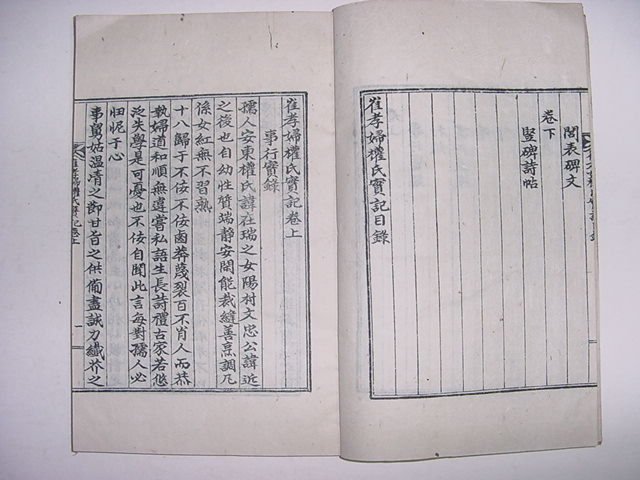 閭表碑文
卷下
竪碑詩帖
崔孝婦權氏實記目錄
崔孝婦權氏實記卷上
事行實錄
孺人安東權氏諱在瑞之女陽村文忠公諱近
之後也自幼性質端靜安閒能裁縫善烹調凡
係女紅無不習熟
十八歸于不佞不佞鹵莽蔑裂百不肖人而恭
執婦道和順無違嘗私語生長詩禮古家若悠
泛失學是可憂也不佞自聞此言每對孺人必
忸怩于心
事舅姑溫凊之節甘旨之供備盡誠力纖芥之
崔孝婦權氏實記卷上
一